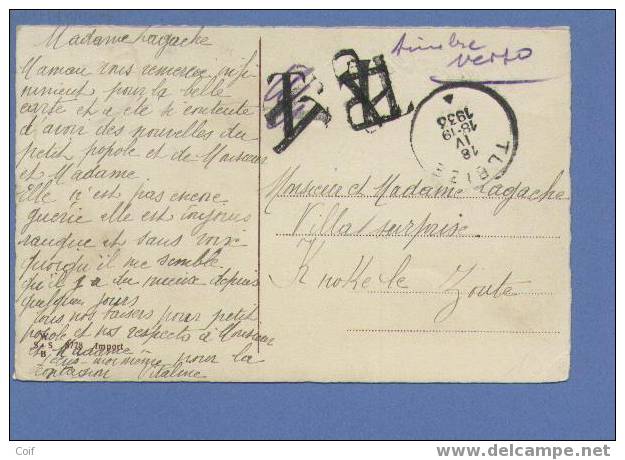 Madame Lagache
Maman vous remercie infi
niment pour la belle
carte et a été si contente
d'avoir des nouvelles du
petit popole et de Monsieur
et Madame.
Elle n'est pas encore
guérie elle est toujours
rauque et sans voix
quoiqu'il me semble
qu'il y a du mieux depuis
quelques jours
Tous nos baisers pour petit
popole et nos respects à Monsieur
et Madame
moi même pour la
S & S
B
6778 Import
timbre
verso
T
T
18
IV
18-19
1936
Monsieur et Madame Lagache
Villa Surprise
Knokke le Zoute
Coif
www.delcampe.net